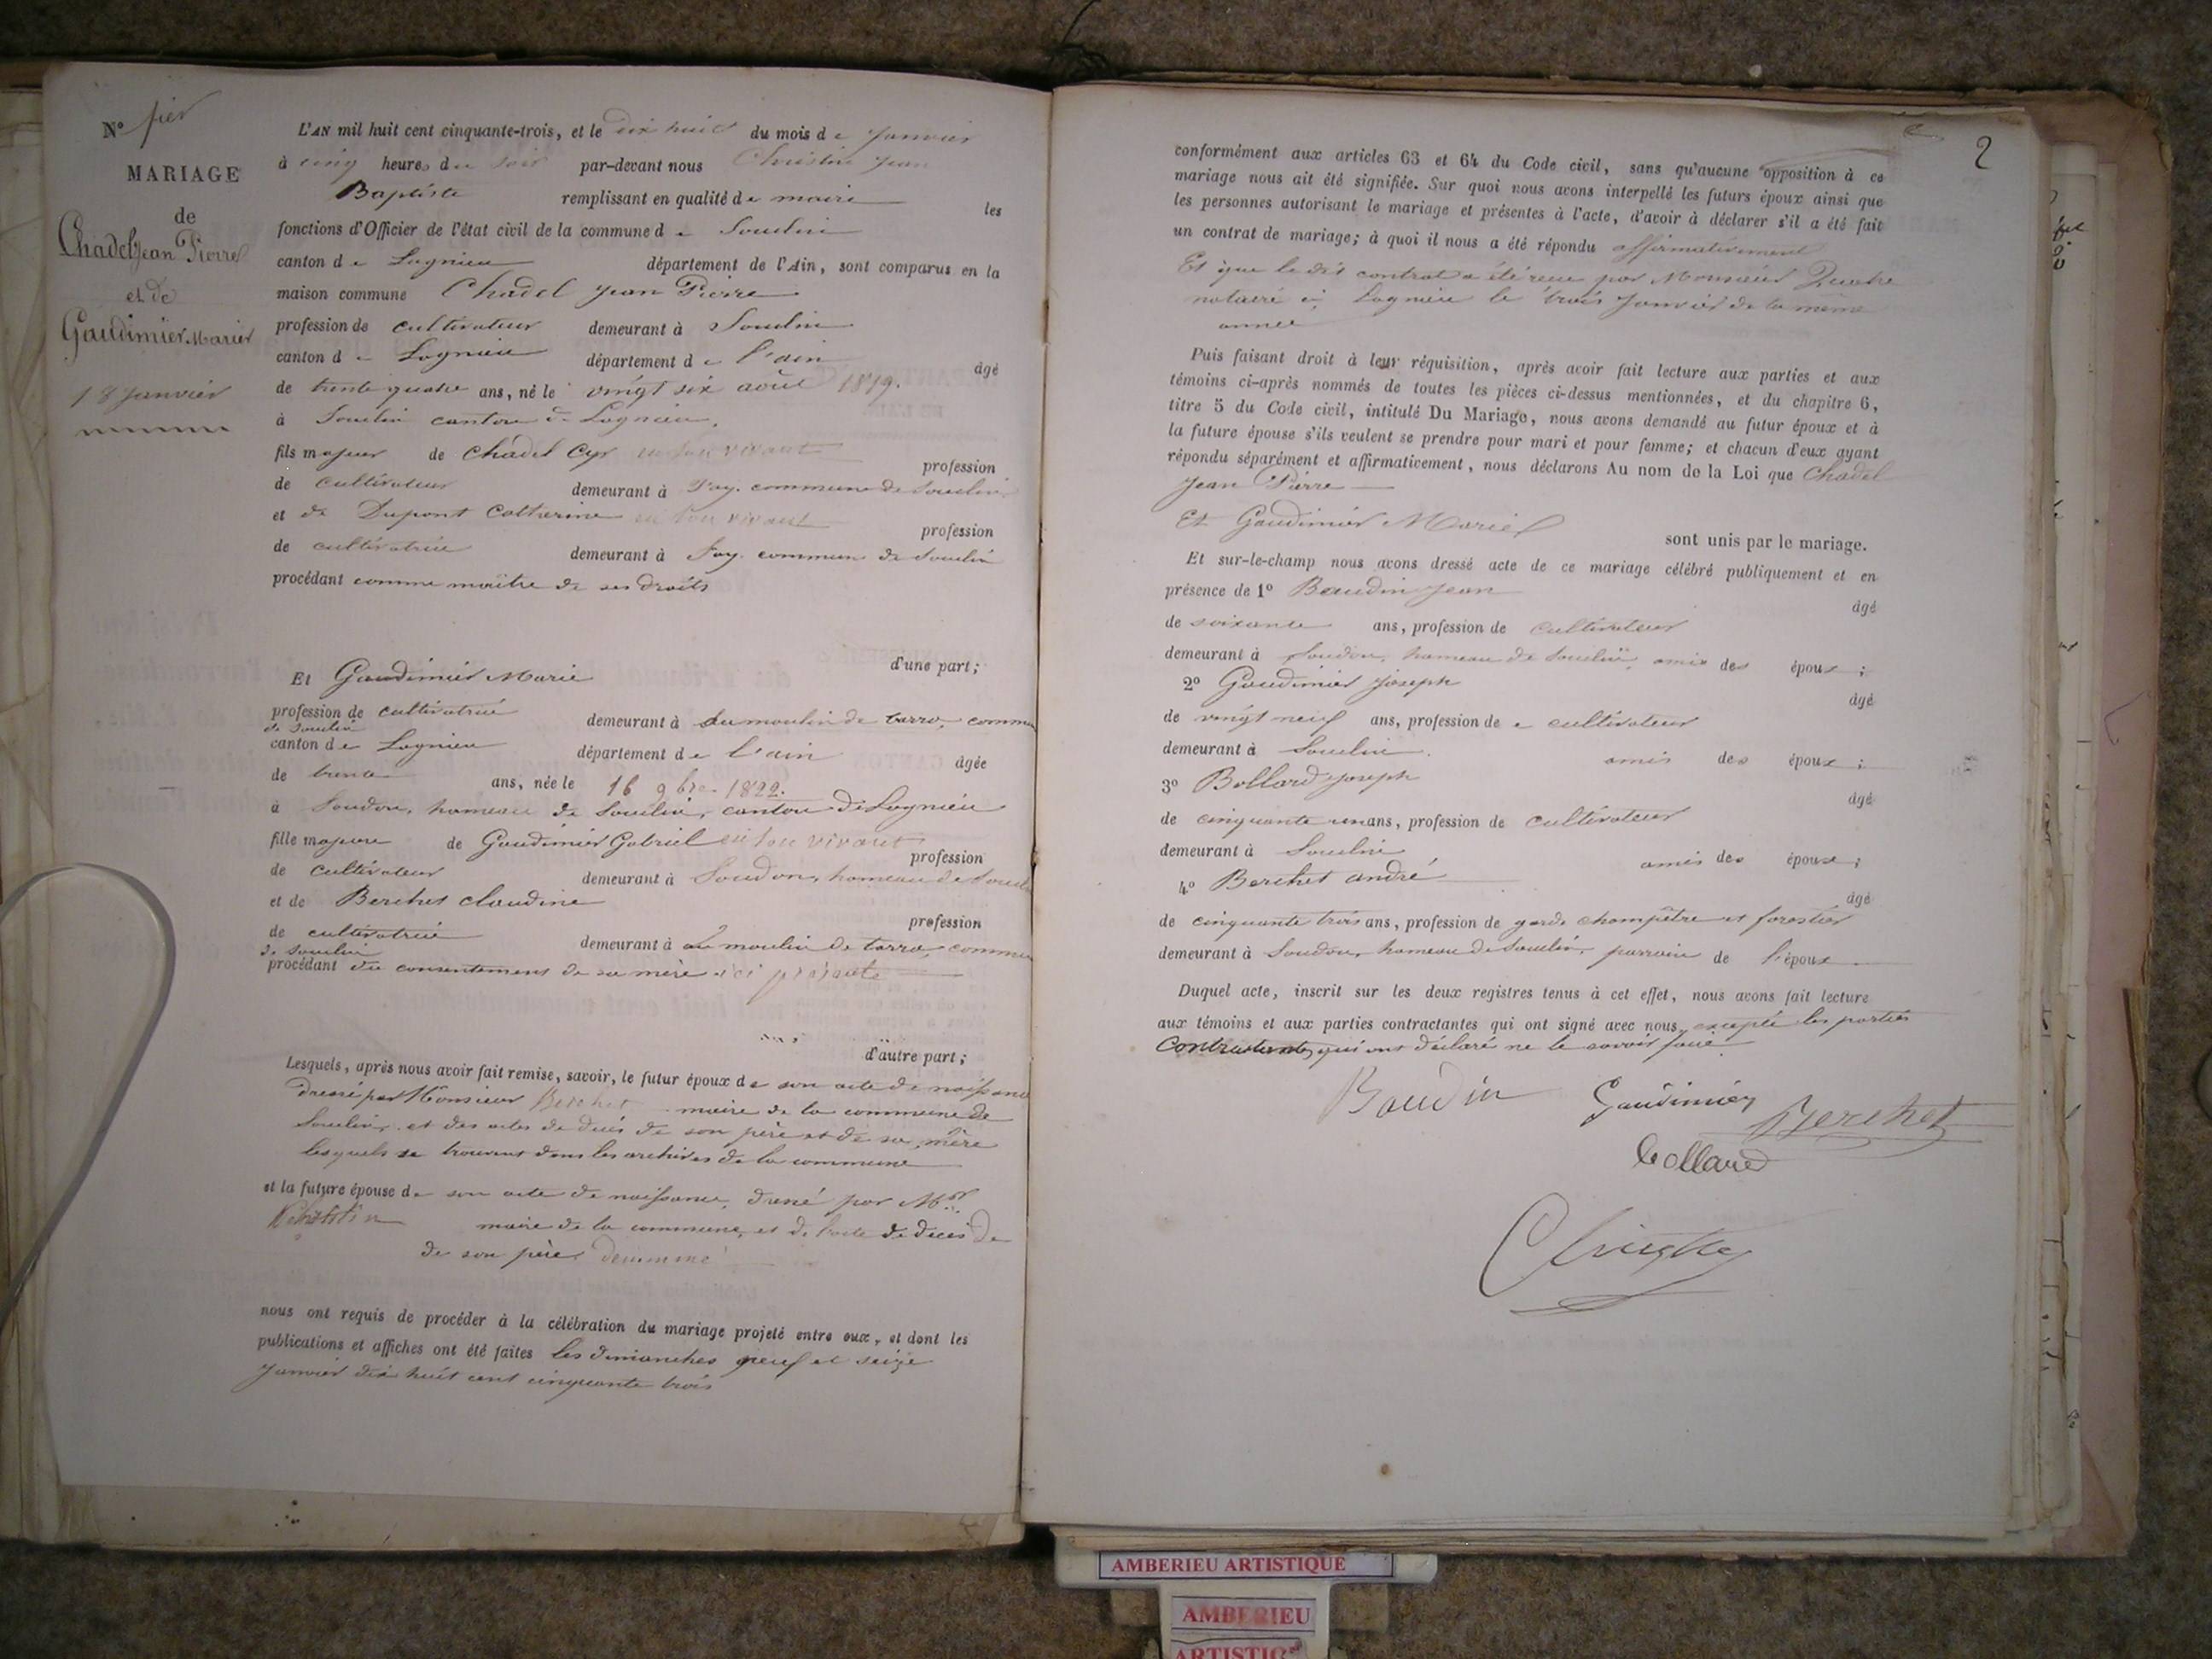 N° 1ier
MARIAGE
de
Chadel Jean Pierre
et de
Gaudimier Marie
18 Janvier
L'AN mil huit cent cinquante-trois, et le dix huit du mois de Janvier
à cinq heures du soir par-devant nous Christin Jean
Baptiste remplissant en qualité de maire les
fonctions d'Officier de l'état civil de la commune de Souclin
canton de Lagnieu département de l'Ain, sont comparus en la
maison commune Chadel Jean Pierre
profession de cultivateur demeurant à Souclin
canton de Lagnieu département de l'ain âgé
de trente quatre ans, né le vingt six août 1819.
à Souclin canton de Lagnieu,
fils majeur de Chadel Cyr en son vivant profession
de cultivateur demeurant à Fay. commune de Souclin
et de Dupont Catherine en son vivant profession
de cultivatrice demeurant à Fay. commune de Souclin
procédant comme maître de ses droits
d'une part;
Et Gaudimier Marie
profession de cultivatrice demeurant à au moulin de tarro, commu
de Souclin
canton de Lagnieu département de l'ain âgée
de trente ans, née le 16 9bre 1822.
à Soudon, hameau de Souclin, canton de Lagnieu
fille majeure de Gaudimier Gabriel en son vivant profession
de cultivateur demeurant à Soudon, hameau de Soucli
et de Berchet claudine profession
de cultivatrice demeurant à au moulin de tarro, commu
de Souclin
procédant du consentement de sa mère ici présente
d'autre part;
Lesquels, après nous avoir fait remise, savoir, le futur époux de son acte de naissance
dressé par Monsieur Berchet maire de la commune de
Souclin, et des actes de décès de son père et de sa mère
lesquels se trouvent dans les archives de la commune
et la future épouse de son acte de naissance, dressé par Mr
maire de la commune, et de l'acte de décès de
de son père dénommé
nous ont requis de procéder à la célébration du mariage projeté entre eux, et dont les
publications et affiches ont été faites les dimanches neuf et seize
Janvier dix huit cent cinquante trois
2
conformément aux articles 63 et 64 du Code civil, sans qu'aucune opposition à ce
mariage nous ait été signifiée. Sur quoi nous avons interpellé les futurs époux ainsi que
les personnes autorisant le mariage et présentes à l'acte, d'avoir à déclarer s'il a été fait
un contrat de mariage; à quoi il nous a été répondu affirmativement
Et que le dit contrat a été reçu par Monsieur
notaire à Lagnieu le trois Janvier de la même
année
Puis faisant droit à leur réquisition, après avoir fait lecture aux parties et aux
témoins ci-après nommés de toutes les pièces ci-dessus mentionnées, et du chapitre 6,
titre 5 du Code civil, intitulé Du Mariage, nous avons demandé au futur époux et à
la future épouse s'ils veulent se prendre pour mari et pour femme; et chacun d'eux ayant
répondu séparément et affirmativement, nous déclarons Au nom de la Loi que Chadel
Jean Pierre
Et Gaudimier Marie sont unis par le mariage.
Et sur-le-champ nous avons dressé acte de ce mariage célébré publiquement et en
présence de 1° Baudin Jean âgé
de soixante ans, profession de cultivateur
demeurant à Soudon, hameau de Souclin amis des époux;
2° Gaudimier Joseph âgé
de vingt neuf ans, profession de cultivateur
demeurant à Souclin. amis des époux;
3° Bollard Joseph âgé
de cinquante un ans, profession de cultivateur
demeurant à Souclin amis des époux;
4° Berchet andré âgé
de cinquante trois ans, profession de garde champêtre et forestier
demeurant à Soudon, hameau de Souclin, parrain de l'époux
Duquel acte, inscrit sur les deux registres tenus à cet effet, nous avons fait lecture
aux témoins et aux parties contractantes qui ont signé avec nous, excepté les parties
Contractantes, qui ont déclaré ne le savoir faire
Baudin Gaudimier
Berchet
bollard
AMBERIEU ARTISTIQUE
AMBERIEU